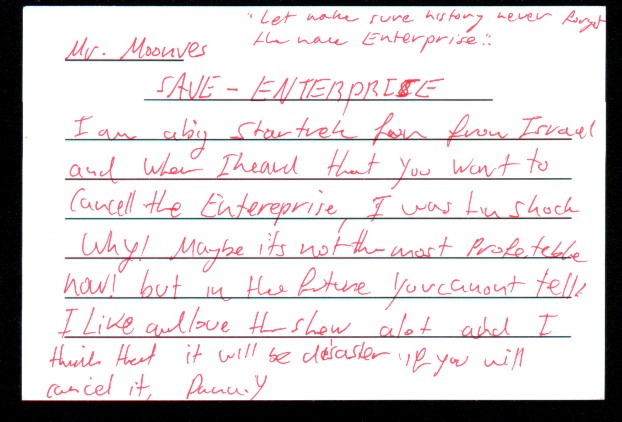 "Let make sure history never forget
the name Enterprise"
Mr. Moonves
SAVE - ENTERPRISE
I am abig Startrek fan from Israel
and when I heard that you want to
Cancell the Entereprise, I was in shock
Why! Maybe its not the most Profeteble
now! but in the future you cannot tell!
I Like and love the show alot and I
think that it will be disaster, if you will
cancel it,